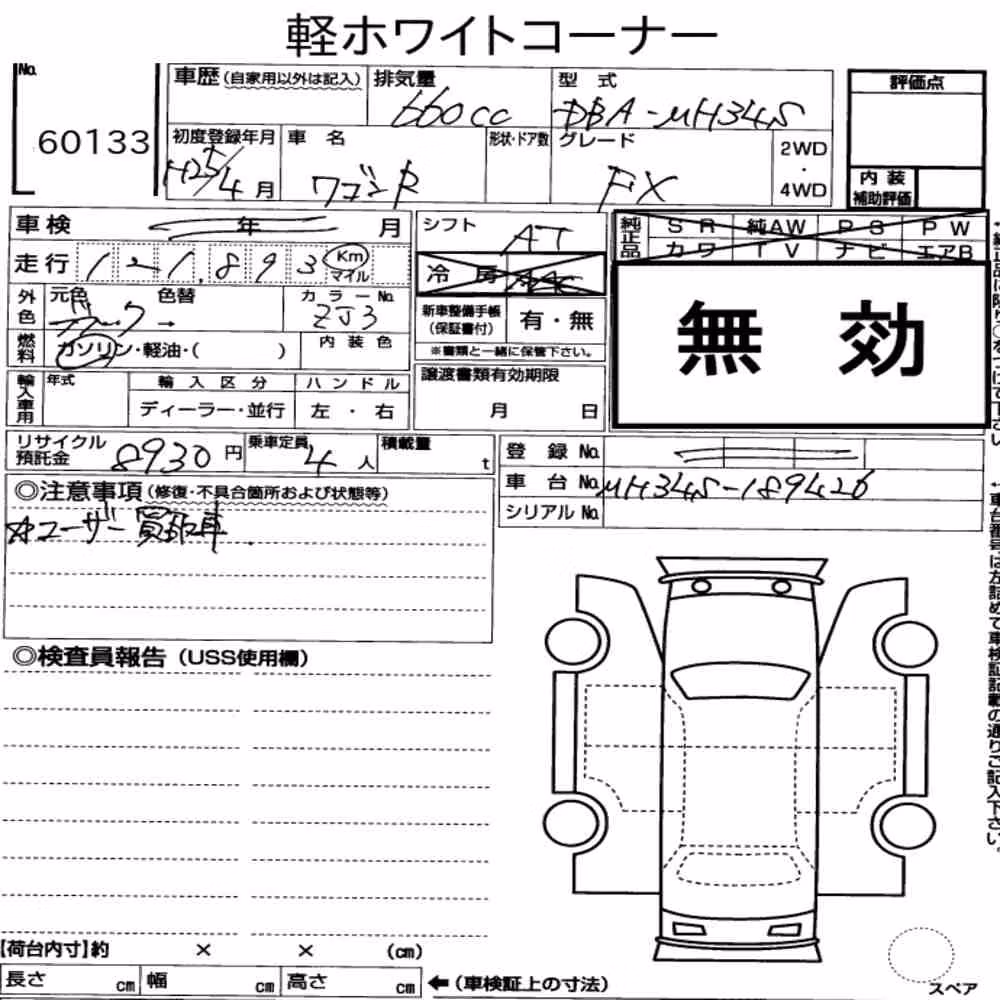 軽ホワイトコーナー
No.
60133
車歴（自家用以外は記入）
排気量
660cc
型 式
DBA-MH34S
評価点
初度登録年月
H25/4月
車 名
ワゴンR
形状・ドア数
グレード
FX
2WD
・
4WD
内 装
補助評価
車検 年 月
シフト
AT
純正品
SR 純AW PS PW
カワ TV ナビ エアB
走行 121,893 Km
マイル
冷 房 AAC
無 効
外色
元色 色替
カラーNo.
ZJ3
新車整備手帳
（保証書付）
有・無
※書類と一緒に保管下さい。
燃料
ガソリン・軽油・（ ）
内装色
輸入車用
年式
輸入区分
ハンドル
ディーラー・並行
左・右
譲渡書類有効期限
月 日
リサイクル
預託金
8930円
乗車定員
4人
積載量
t
登 録 No.
車 台 No. MH34S-189426
シリアル No.
◎注意事項（修復・不具合箇所および状態等）
☆ユーザー買取車.
◎検査員報告（USS使用欄）
【荷台内寸】約 × × （cm）
長さ cm 幅 cm 高さ cm ←（車検証上の寸法）
スペア
↑車台番号は左詰めで車検証記載の通りご記入下さい。